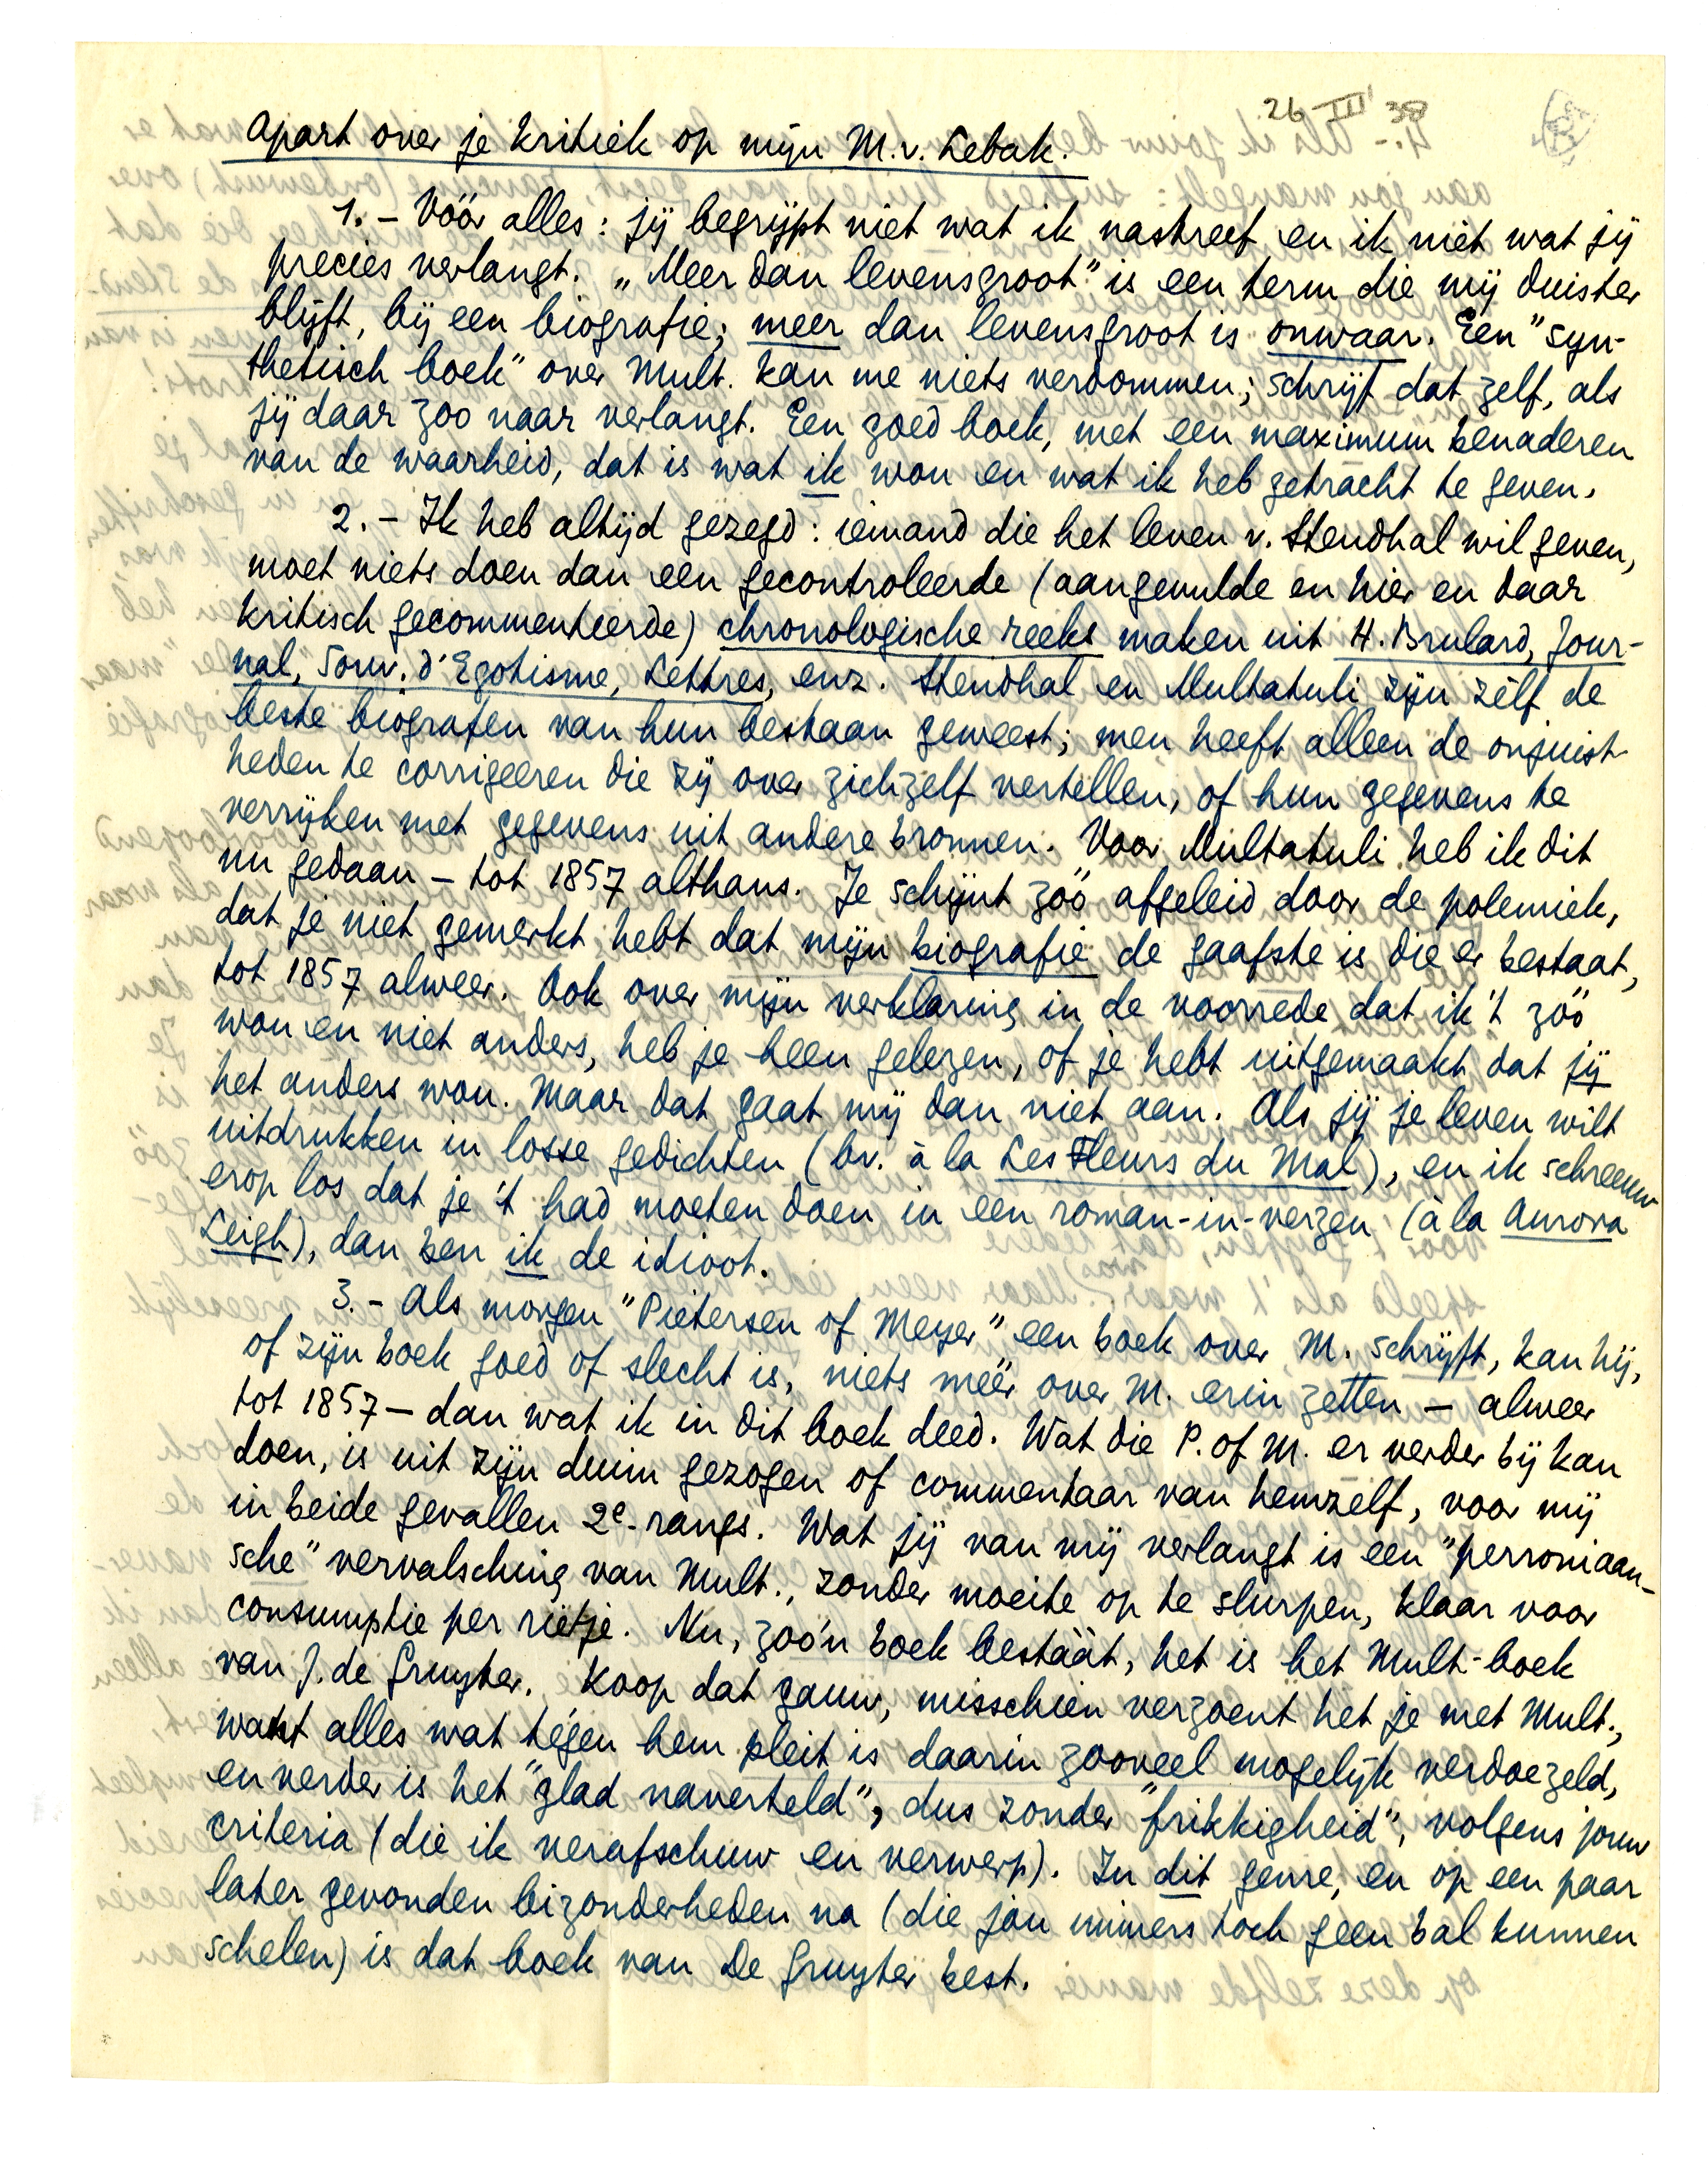 26 III 38
Apart over je kritiek op mijn M.v. Lebak.
1. – Vóór alles: jij begrijpt niet wat ik nastreef en ik niet wat jij
precies verlangt. „Meer dan levensgroot” is een term die mij duister
blijft, bij een biografie; meer dan levensgroot is onwaar. Een "syn-
thetisch boek" over Mult. kan me niets verdommen; schrijf dat zelf, als
jij daar zoo naar verlangt. Een goed boek, met een maximum benaderen
van de waarheid, dat is wat ik wou en wat ik heb getracht te geven.
2. – Ik heb altijd gezegd: iemand die het leven v. Stendhal wil geven,
moet niets doen dan een gecontroleerde (aangevulde en hier en daar
kritisch gecommenteerde) chronologische reeks maken uit H. Brulard, Jour-
nal, Souv. d'Egotisme, Lettres, enz. Stendhal en Multatuli zijn zélf de
beste biografen van hun bestaan geweest; men heeft alleen de onjuist-
heden te corrigeeren die zij over zichzelf vertellen, of hun gegevens te
verrijken met gegevens uit andere bronnen. Voor Multatuli heb ik dit
nu gedaan – tot 1857 althans. Je schijnt zóó afgeleid door de polemiek,
dat je niet gemerkt hebt dat mijn biografie de gaafste is die er bestaat,
tot 1857 alweer. Ook over mijn verklaring in de voorrede dat ik 't zóó
wou en niet anders, heb je heen gelezen, of je hebt uitgemaakt dat jij
het anders wou. Maar dat gaat mij dan niet aan. Als jij je leven wilt
uitdrukken in losse gedichten (bv. à la Les Fleurs du Mal), en ik schreeuw
erop los dat je 't had moeten doen in een roman-in-verzen (à la Aurora
Leigh), dan ben ik de idioot.
3. – Als morgen "Pietersen of Meyer" een boek over M. schrijft, kan hij,
of zijn boek goed of slecht is, niets méér over M. erin zetten – alweer
tot 1857 – dan wat ik in dit boek deed. Wat die P. of M. er verder bij kan
doen, is uit zijn duim gezogen of commentaar van hemzelf, voor mij
in beide gevallen 2e-rangs. Wat jij van mij verlangt is een "perroniaan-
sche" vervalsching van Mult., zonder moeite op te slurpen, klaar voor
consumptie per rietje. Nu, zoo'n boek bestáát, het is het Mult-boek
van J. de Gruyter. Koop dat gauw, misschien verzoent het je met Mult.,
want alles wat tégen hem pleit is daarin zooveel mogelijk verdoezeld,
en verder is het "glad naverteld", dus zonder "frikkigheid", volgens jouw
criteria (die ik verafschuw en verwerp). In dit genre, en op een paar
later gevonden bizonderheden na (die jou immers toch geen bal kunnen
schelen) is dat boek van De Gruyter best.